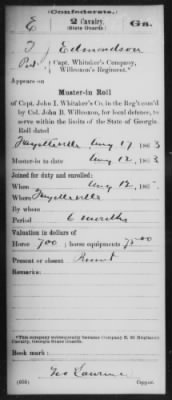 (Confederate.)
E 2 Cavalry, Ga.
(State Guards.)
T Edmondson
Pvt., Capt. Whitaker's Company,
Willcoxon's Regiment.*
Appears on
Muster-in Roll
of Capt. John I. Whitaker's Co. in the Reg't com'd
by Col. John B. Willcoxon, for local defence, to
serve within the limits of the State of Georgia.
Roll dated
Fayetteville Aug 17, 1863
Muster-in to date Aug 12, 1863
Joined for duty and enrolled:
When Aug 12, 186
Where Fayetteville
By whom
Period 6 months
Valuation in dollars of
Horse 700; horse equipments 75.00
Present or absent Present
Remarks:
*This company subsequently became Company E, 2d Regiment
Cavalry, Georgia State Guards.
Book mark:
Copyist.